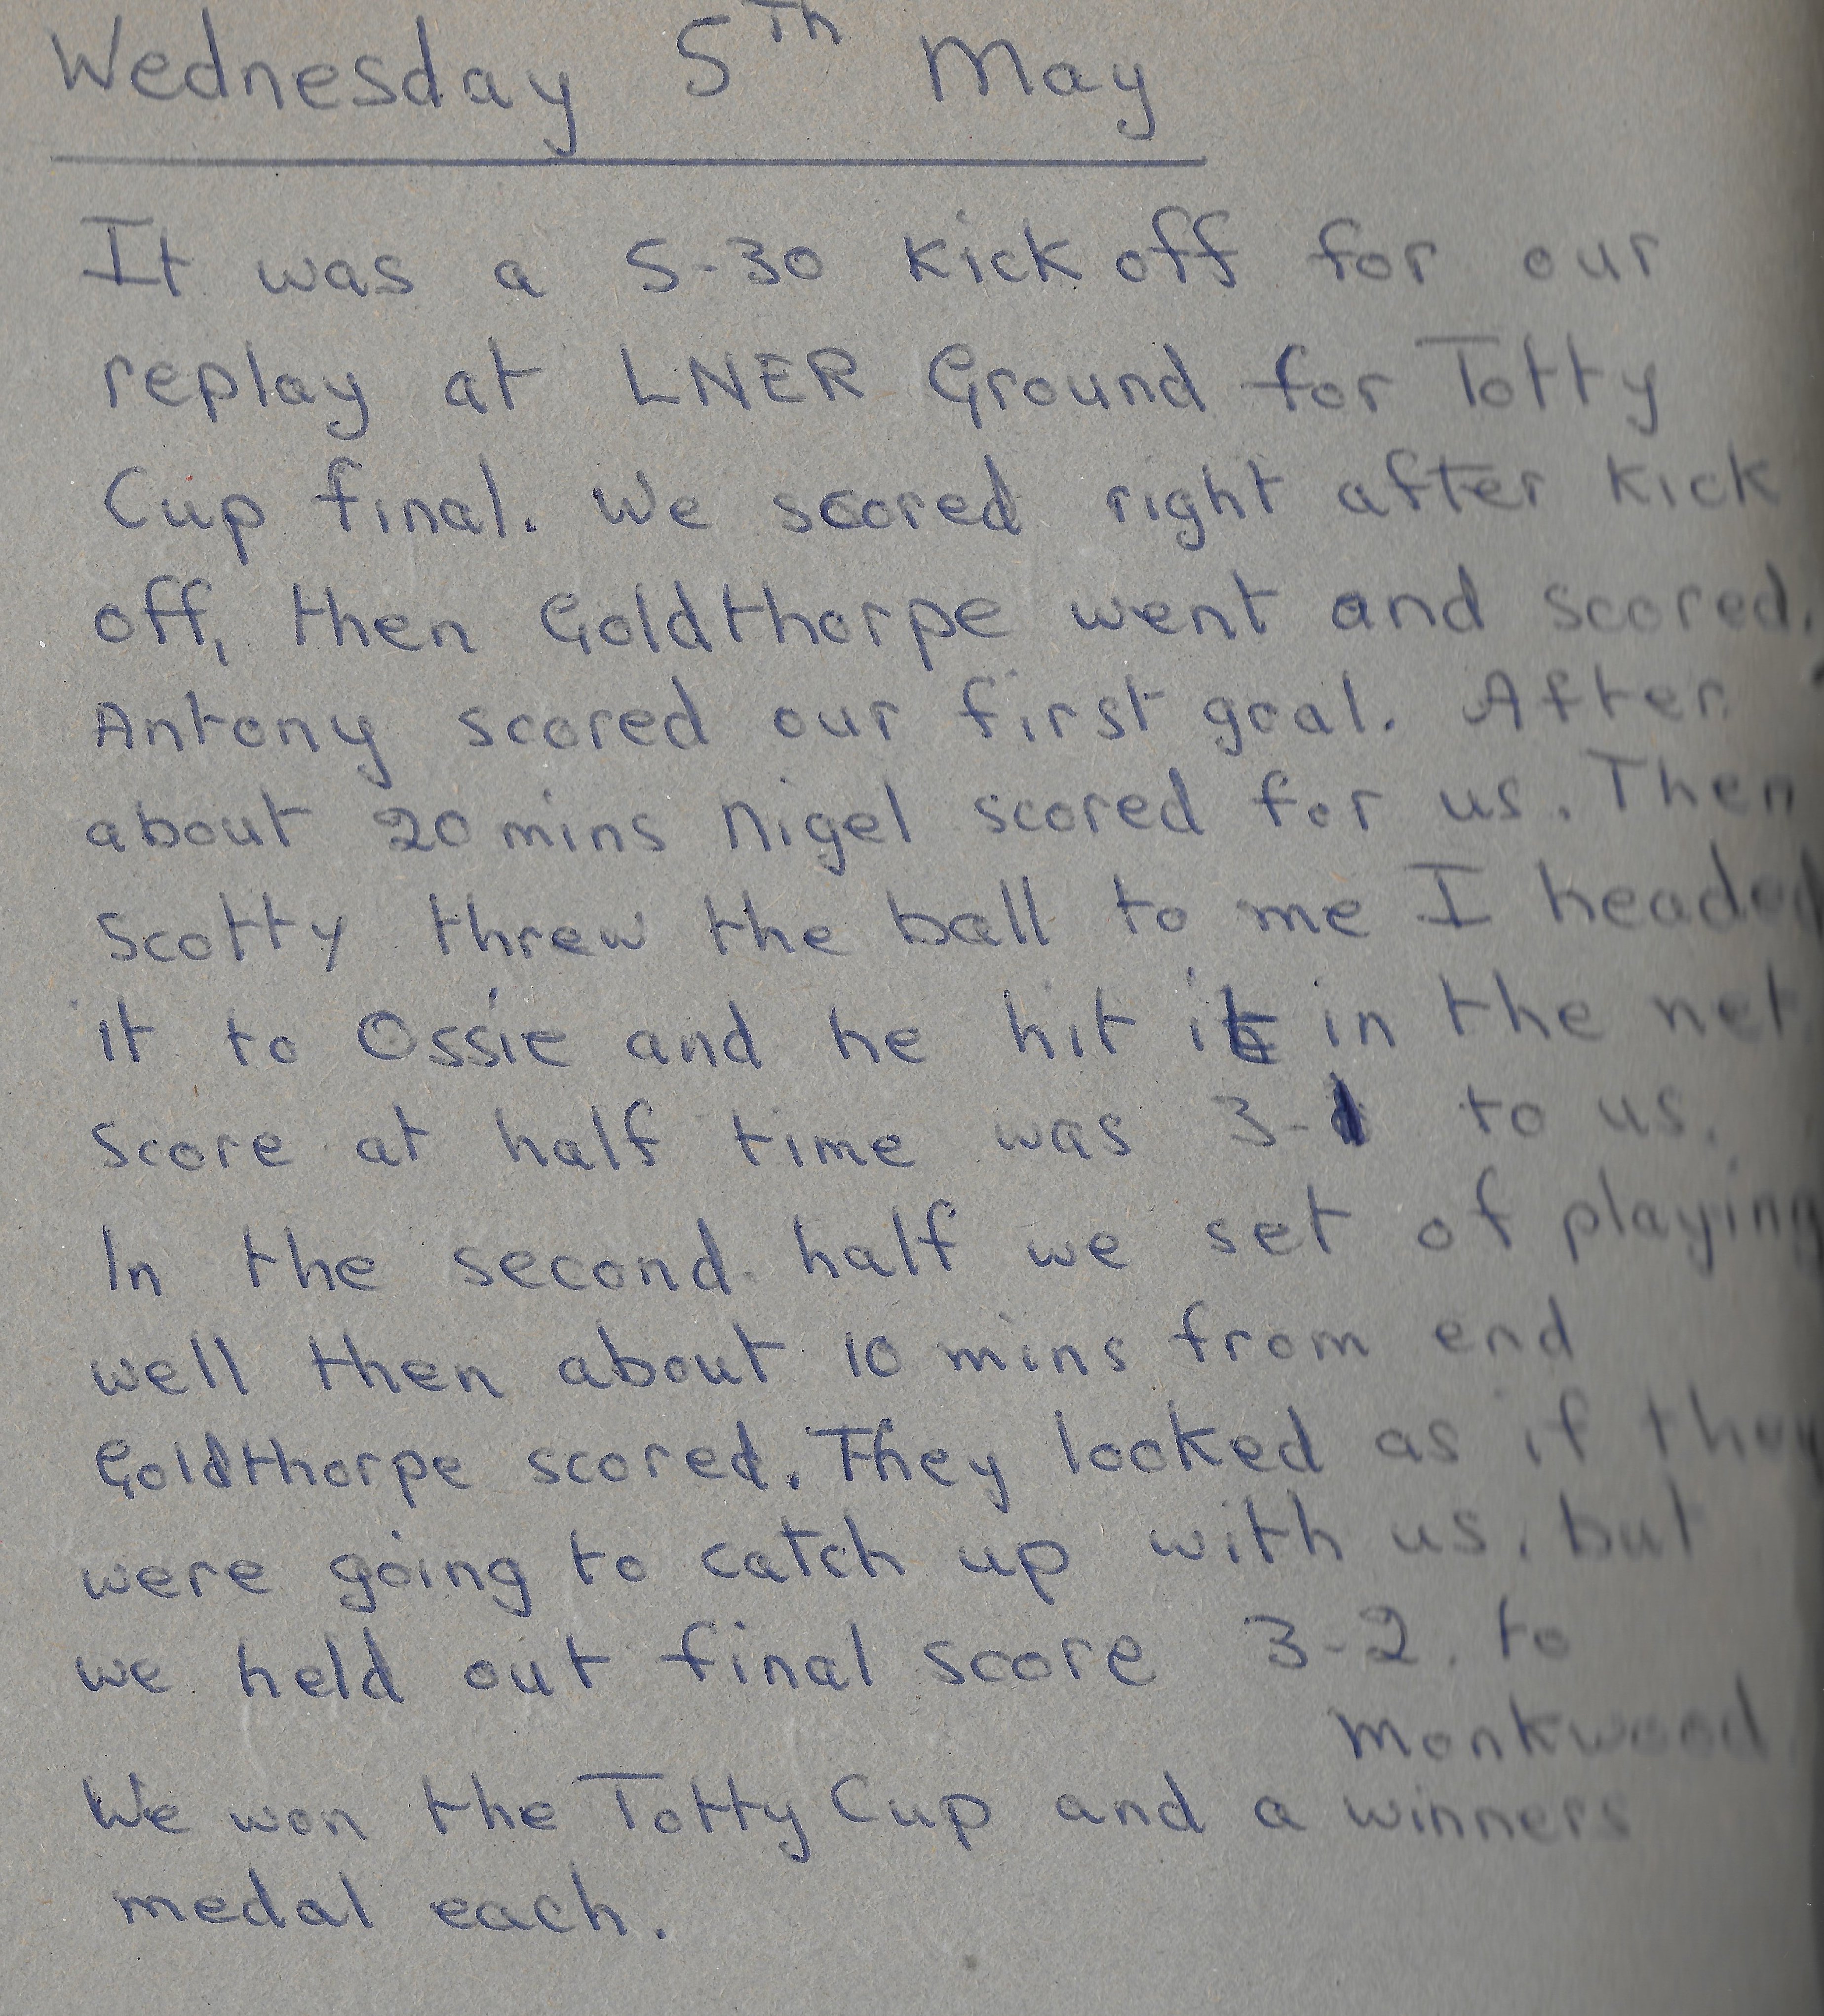 Wednesday 5Th May
It was a 5-30 kick off for our
replay at LNER Ground for Totty
Cup final. We scored right after kick
off, then Goldthorpe went and scored.
Antony scored our first goal. After
about 20 mins Nigel scored for us. Then
Scotty threw the ball to me I headed
it to Ossie and he hit it in the net.
Score at half time was 3-1 to us.
In the second half we set of playing
well then about 10 mins from end
Goldthorpe scored. They looked as if they
were going to catch up with us, but
we held out final score 3-2. to
Monkwood.
We won the Totty Cup and a winners
medal each.